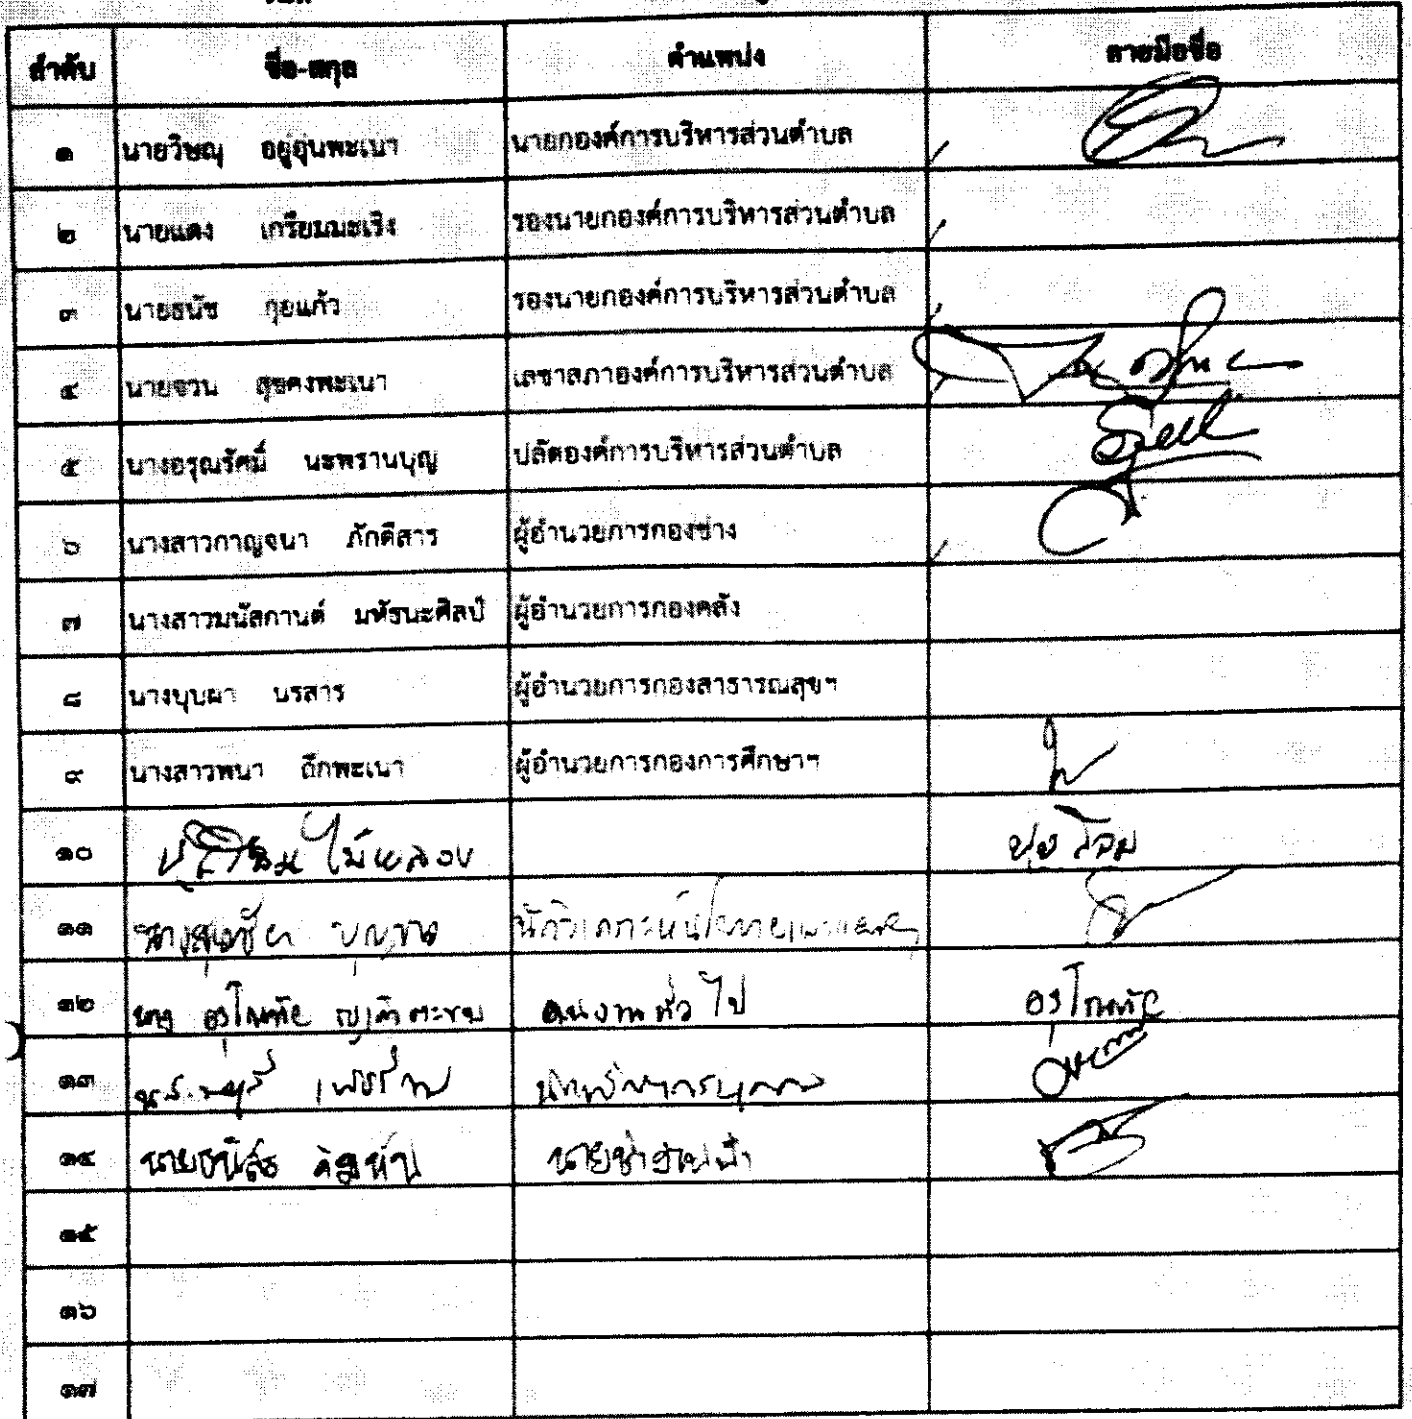 ลำดับ ชื่อ-สกุล ตำแหน่ง ลายมือชื่อ
๑ นายวิษณุ อยู่อุ่นพะเนา นายกองค์การบริหารส่วนตำบล
๒ นายแดง เกรียมมะเริง รองนายกองค์การบริหารส่วนตำบล
๓ นายธนัช กุยแก้ว รองนายกองค์การบริหารส่วนตำบล
๔ นายจวน สุขคงพะเนา เลขาสภาองค์การบริหารส่วนตำบล
๕ นางอรุณรัศมิ์ นะพรานบุญ ปลัดองค์การบริหารส่วนตำบล
๖ นางสาวกาญจนา ภักดีสาร ผู้อำนวยการกองช่าง
๗ นางสาวมนัสกานต์ มหัธนะศิลป์ ผู้อำนวยการกองคลัง
๘ นางบุบผา นรสาร ผู้อำนวยการกองสาธารณสุขฯ
๙ นางสาวพนา ถึกพะเนา ผู้อำนวยการกองการศึกษาฯ
๑๐
๑๑ บุญ
๑๒ นาง อรุโณทัย คนงานทั่วไป อรุโณทัย
๑๓ น.ส.
๑๔ นาย นายช่างไฟฟ้า
๑๕
๑๖
๑๗